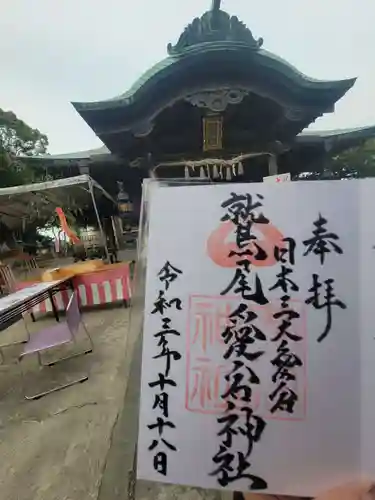 奉拝
日本三大愛宕
鷲尾愛宕神社
令和三年十月十八日
神社